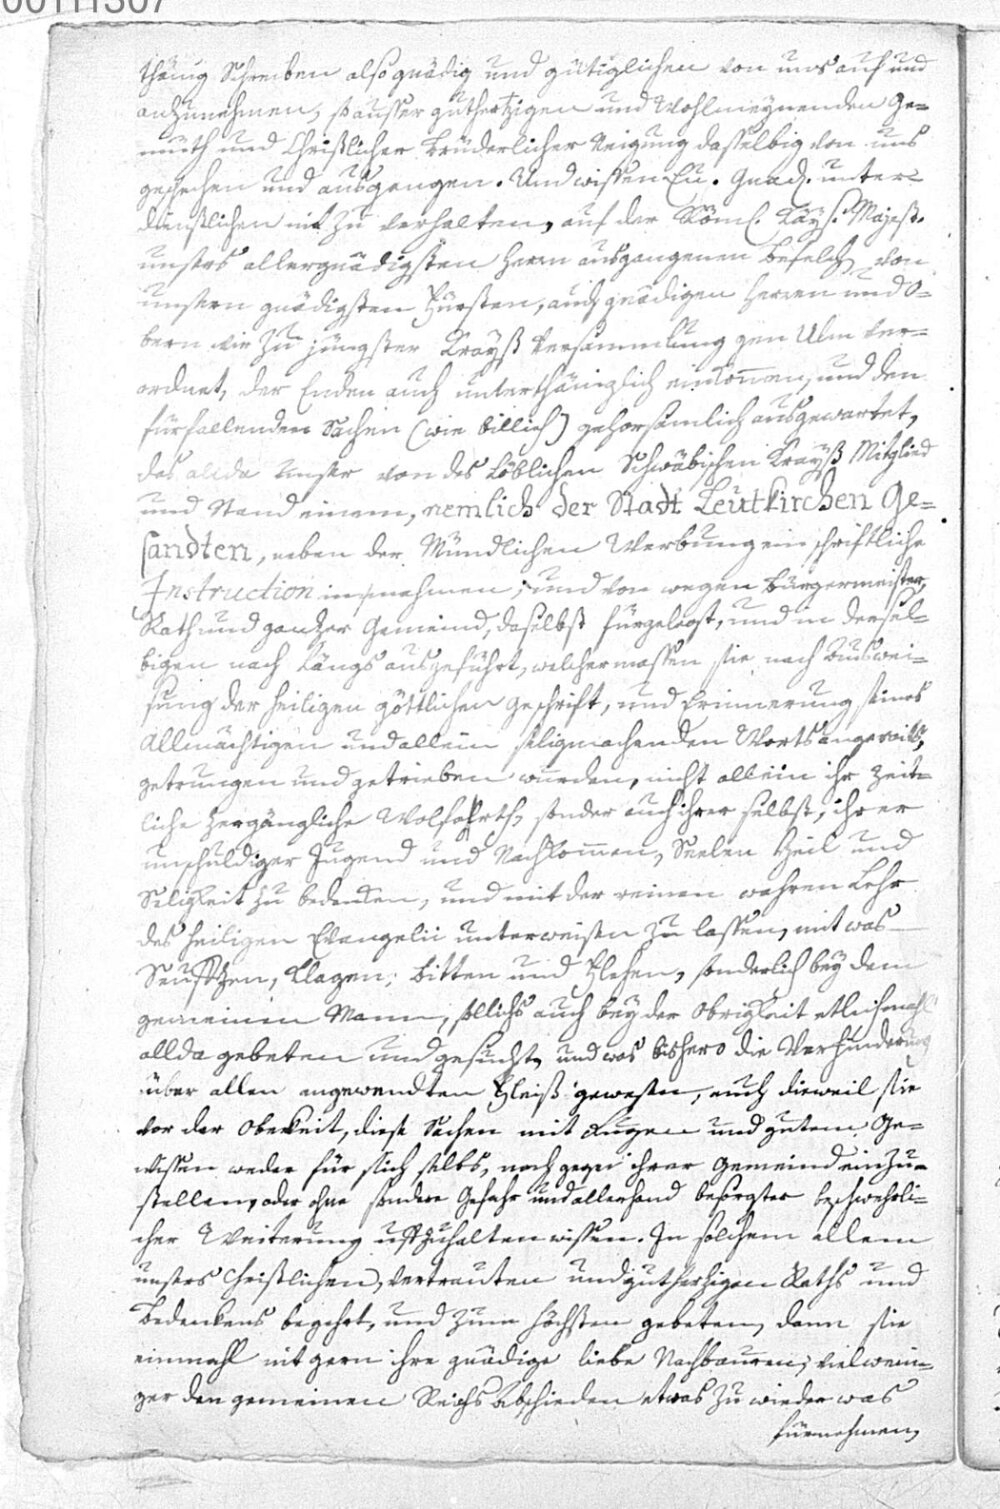 00111307
thänig Schreiben also gnädig und gütiglichen von uns auf und
anzunehmen, so ausser guthertzigen und Wohlmeynenden Ge-
müth und Christlicher Brüderlicher Neigung dasselbig von uns
geschehen und ausgangen. Und wissen Eu. Gnad. unter-
dienstlichen nit zu verhalten, auf der Röm. Kays. Majest.
unsers allergnädigsten Herrn ausgangenen Befelch, von
unsern gnädigsten Fürsten, auch gnädigen Herren und O-
bern wir zu jüngster Krayß Versammlung gen Ulm ver-
ordnet, der Enden auch unterthäniglich einkommen, und den
fürfallenden Sachen (wie billich) gehorsamlich ausgewartet,
das allda unser von des Löblichen Schwäbischen Krayß Mitglied
und Stand einem, nemlich der Stadt Leutkirchen Ge-
sandten, neben der Mündlichen Werbung ein schriftliche
Instruction innahmen, und von wegen Burgermeister,
Rath und gantzer Gemeind, daselbst fürgelegt, und in dersel-
bigen nach Längs ausgeführt, welcher massen sie nach Auswei-
sung der heiligen göttlichen Geschrift, und Erinnerung seines
Allmächtigen und allein seligmachenden Worts angereitzt,
getrungen und getrieben wurden, nicht allein ihr zeit-
liche zergängliche Wolfahrth, sonder auch ihrer selbst, ihrer
unschuldiger Jugend und Nachkommen, Seelen Heil und
Seligkeit zu bedencken, und mit der reinen wahren Lehr
des heiligen Evangelii unterweisen zu lassen, mit was
Seufftzen, Klagen, Bitten und Flehen, sonderlich bey dem
gemeinen Mann, sollichs auch bey der Obrigkeit etlichmahl
allda gebeten und gesucht, und was bishero die Verhinderung
über allen angewendten Fleiß gewesen, auch dieweil sie
vor der Oberkeit, diese Sachen mit Fugen und gutem Ge-
wissen weder für sich selbs, noch gegen ihrer Gemeind einzu-
stellen, oder ohne sondere Gefahr und allerhand besorgter beschwehrli-
cher Weiterung uffzuhalten wissen. In solchem allem
unsers Christlichen, vertrauten und guthertzigen Raths und
Bedenckens begehrt, und zum höchsten gebeten, dann sie
einmahl nit gern ihre gnädige liebe Nachbauren, viel wenin-
ger den gemeinen Reichs Abschieden etwas zu wieder was
fürnehmen,